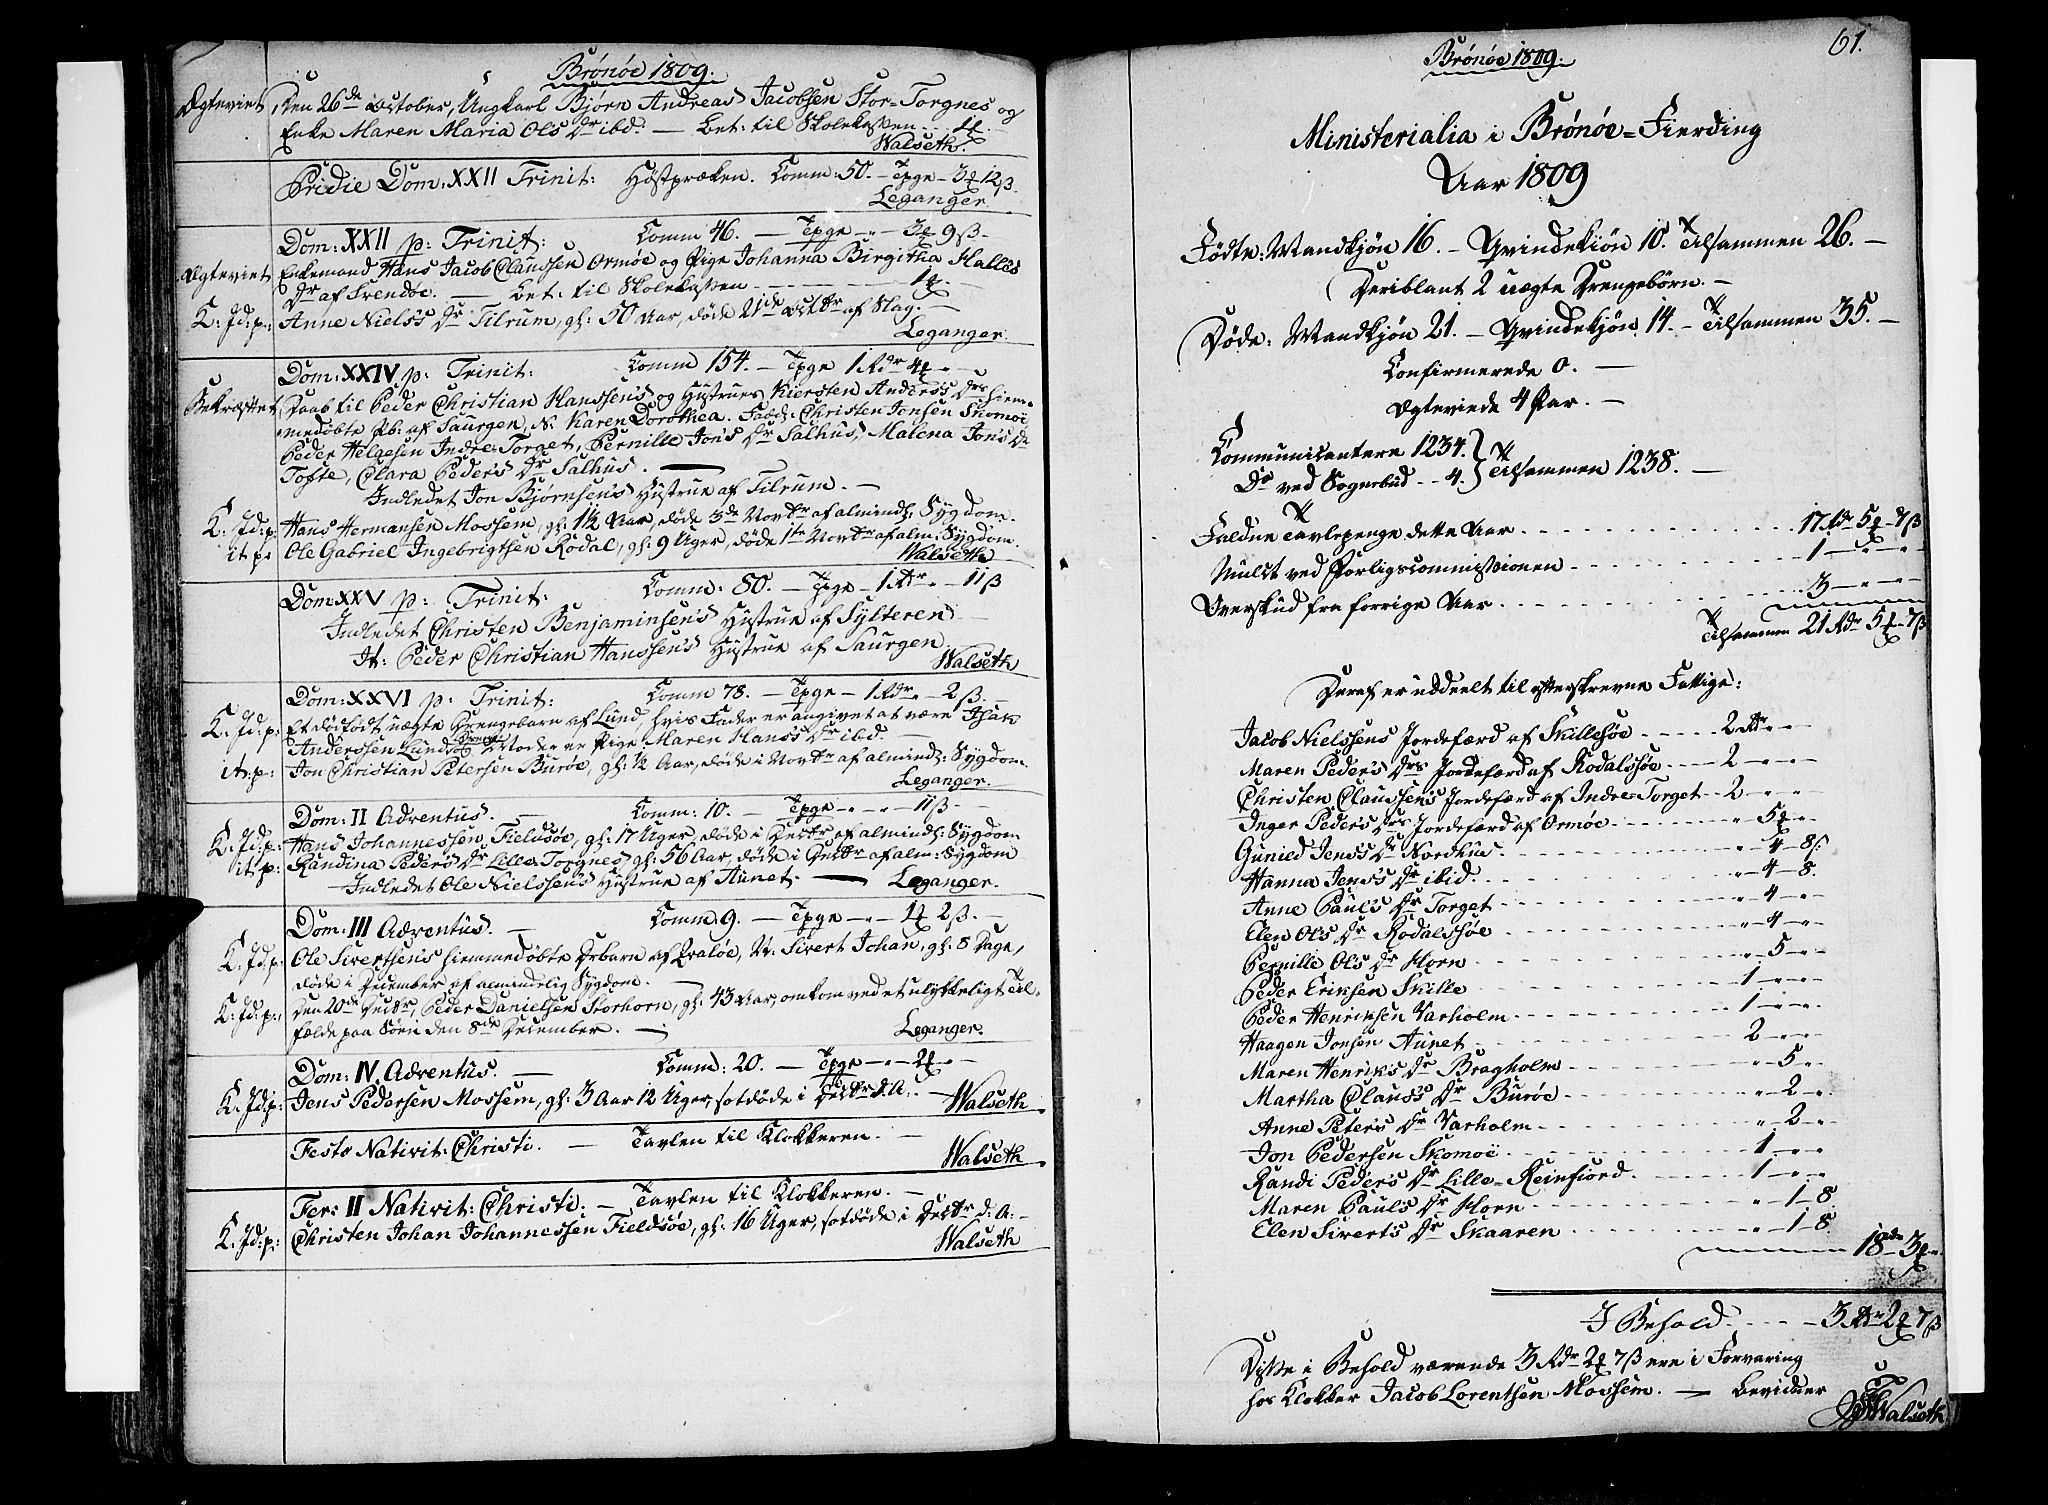 Brønøe 1809.
Ægteviet Den 26de October, Ungkarl Bjørn Andreas Jacobsen Stor-Torgnes og
Enke Maren Maria Ols Dr ibd. — Bet: til Skolekassen
Walseth.
Pridie Dom: XXII Trinit: Höstpræken. Comm: 50. — Tpge — 3 12 ß.
Leganger
Dom: XXII p: Trinit: Comm 46. — Tpge — 9 ß —
Ægteviet Enkemand Hans Jacob Claussen Ormøe og Pige Johanna Birgitha Halles
Dr af Svendøe. — Bet: til Skolekassen
K: Jd: p: Anne Niels's Dr Tilrum, gl: 50 Aar, døde 21de Octbr af Slag.
Leganger.
Dom: XXIV p: Trinit: Comm 154. — Tpge 1 Rdr 4
Bekræftet Daab til Peder Christian Hanssen's og Hustrues Kiersten Anders's Drs hiem-
medøbte Pb: af Saurgen, N: Karen Dorothea. Fadd: Christen Jonsen Skomoe,
Peder Helgesen Indre-Torget, Pernille Jon's Dr Salhus, Malena Jon's Dr
Tofte, Clara Peder's Dr Salhus. —
Indledet Jon Bjørnsen's Hustrue af Tilrum. —
K: Jd: p: Hans Hermansen Mossem, gl: 1½ Aar, døde 3de Novbr af almindl: Sygdom.
it p: Ole Gabriel Ingebrigtsen Rodal, gl: 9 Uger, døde 1te Novbr af alm: Sygdom.
Walseth
Dom: XXV p: Trinit: Comm: 80. — Tpge — 1 Rdr — 11 ß
Indledet Christen Benjaminsen's Hustrue af Sylteren —
It: Peder Christian Hanssen's Hustrue af Saurgen
Walseth
Dom: XXVI p: Trinit: Comm 78. — Tpge — 1 Rdr — 2 ß. —
K: Jd: p: Et dødfødt uægte Drengebarn af Lund, hvis Fader er angivet at være Isak
Anderssen Lund, Moder er Pige Maren Hans's Dr ibd —
it: p: Jon Christian Petersen Burøe, gl: ½ Aar, døde i Novbr af almindl: Sygdom
Leganger.
Dom: II Adventus. — Comm: 10. — Tpge — 11 ß —
K: Jd: p: Hans Johannessen Fieldsøe, gl: 17 Uger, døde i Decbr af almindl: Sygdom
it p: Randina Peders Dr Lille-Torgnes gl: 56 Aar, døde i Decbr af alm: Sygdom
Indledet Ole Nielssen's Hustrue af Aunet. — Leganger.
Dom: III Adventus. — Comm: 9. — Tpge — 2 ß. —
K: Jd: p: Ole Sivertsen's hiemmedøbte Drbarn af Qvaløe, N: Sivert Johan, gl: 8 Dage,
døde i December af almindelig Sygdom. —
K: Jd: p: Den 20de Decbr, Peder Danielsen Storhorn, gl: 43 Aar, omkom ved et ulykkeligt Til-
fælde paa Söen den 8de December. —
Leganger.
Dom: IV. Adventus. — Comm: 20. — Tpge — 2
K: Jd: p: Jens Pedersen Mossem, gl: 3 Aar 12 Uger, sotdöde i Decbr d: A:. — Walseth
Festo Nativit: Christi. — Tavlen til Klokkeren. —
Walseth
Fer: II Nativit: Christi: — Tavlen til Klokkeren. —
K: Jd: p: Christen Johan Johannessen Fieldsøe, gl: 16 Uger, sotdöde i Decbr d: A: —
Walseth
Brønøe 1809.
61.
Ministerialia i Brønøe-Fierding
Aar 1809
Fødte: Mandkjøn 16. — Qvindekiøn 10. Tilsammen 26. —
Deriblant 2 uægte Drengebörn. —
Døde: Mandkjøn 21. — Qvindekjøn 14. — Tilsammen 35. —
Confirmerede 0. —
Ægteviede 4 Par. —
Communicantere 1234.
Do ved Sognebud - - 4. } Tilsammen 1238. —
Faldne Tavlepenge dette Aar 17 Rdr 5 - 7 ß
Mulct ved Forligscommissionen 1
Overskud fra forrige Aar 3
Tilsammen 21 Rdr 5 - 7 ß
Deraf er uddeelt til efterskrevne Fattige:
Jacob Nielssens Jordefærd af Skillesøe 2 Rdr
Maren Peder's Drs Jordefærd af Rodalssøe 2
Christen Claussen's Jordefærd af Indre-Torget 2
Inger Peder's Drs Jordefærd af Ormøe 5
Gunild Jens's Dr Nordhus 4 - 8 ß
Hanna Jens's Dr ibid. 4 - 8.
Anne Paul's Dr Torget 4
Elen Ols Dr Rodalssøe 4
Pernille Ols Dr Horn 5
Peder Eriksen Skille 1
Peder Henriksen Varholm 1
Haagen Jonsen Aunet 2
Maren Henriks Dr Bragholm 5
Martha Claus's Dr Burøe 2
Anne Peters Dr Varholm 2
Jon Pedersen Skomoe 1
Randi Peders Dr Lille-Reinfiord 1
Maren Pauls Dr Horn 1 - 8
Elen Siverts Dr Skaaren 1 - 8.
18 Rdr 3
I Behold 3 Rdr 2 7 ß
Disse i Behold værende 3 Rdr 2 7 ß ere i Forvaring
hos Klokker Jacob Lorentsen Mossem. — Bevidner
Walseth